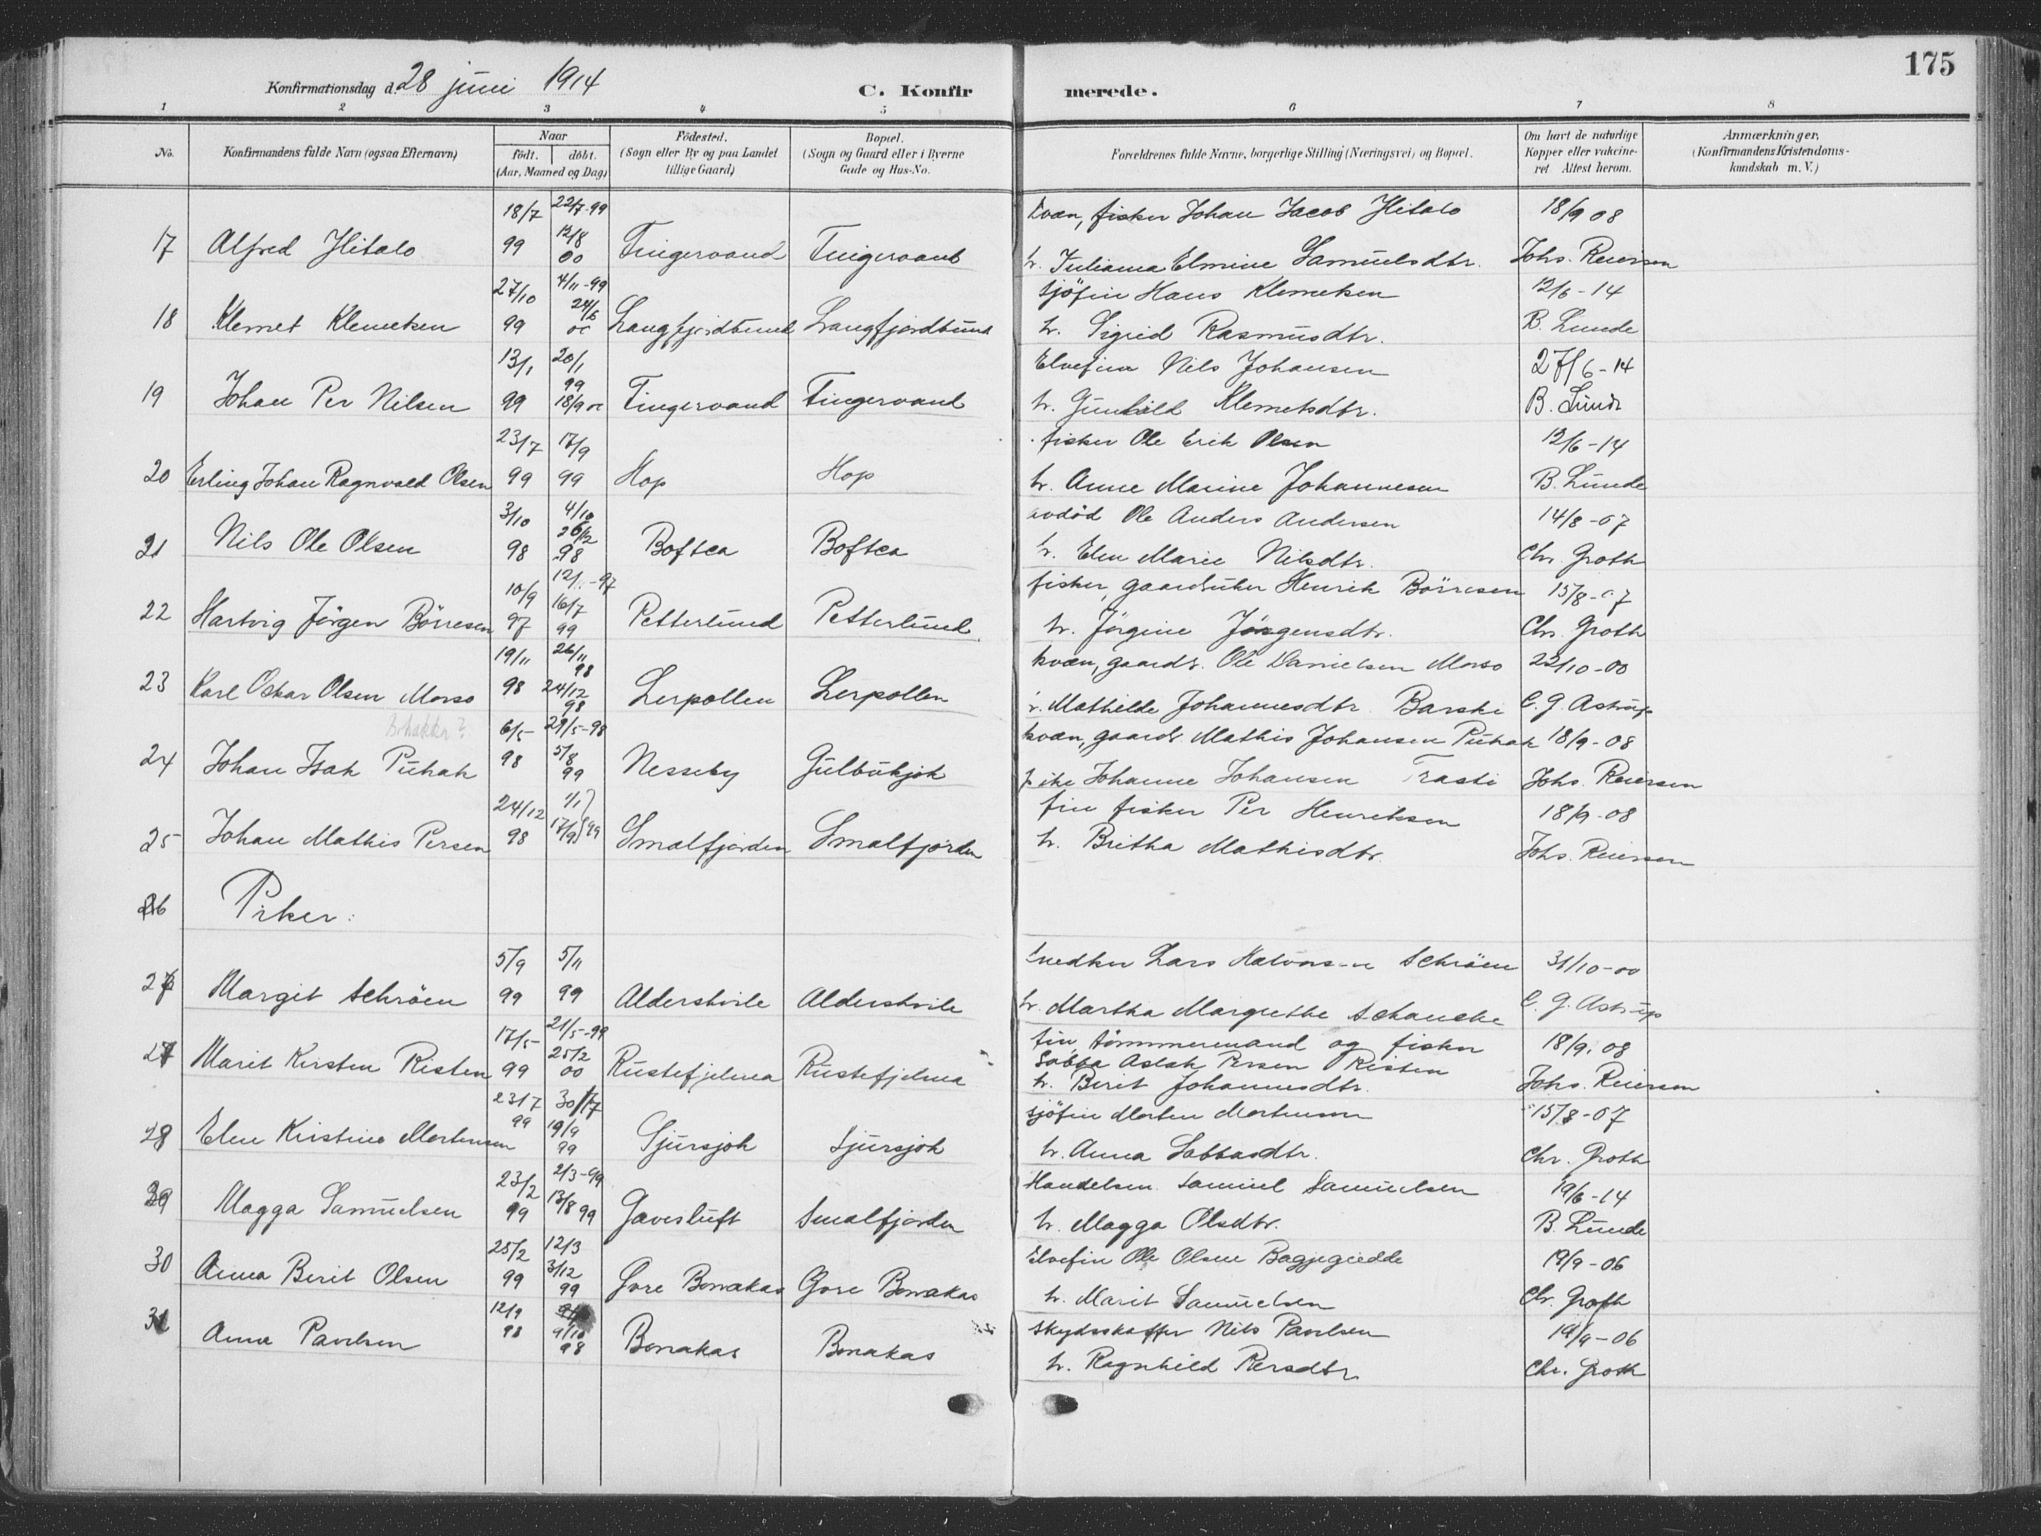 175
Konfirmationsdag d. 28 juni 1914 C. Konfirmerede.
1 2 3 4 5 6 7 8
No. Konfirmandens fulde Navn (ogsaa Efternavn) Naar födt. döbt. (Aar, Maaned og Dag) Födested. (Sogn eller By og paa Landet tillige Gaard) Bopæl. (Sogn og Gaard eller i Byerne Gade og Hus-No. Forældrenes fulde Navne, borgerlige Stilling (Næringsvei) og Bopæl. Om havt de naturlige Kopper eller vakcineret. Attest herom. Anmærkninger, (Konfirmandens Kristendomskundskab m. V.)
18/7 22/7-99 Kvæn, fisker Johan Jacob Ylitalo 18/9 08
17 Alfred Ylitalo 99 12/8 00 Fingervand Fingervand h. Juliana Elmine Samuelsdtr. Johs. Reiersen
27/10 4/11-99 Sjöfin Hans Klemetsen 12/6-14
18 Klemet Klemetsen 99 24/6 00 Langfjordbund Langfjordbund h. Sigrid Rasmusdtr. B. Lunde
13/1 20/1 99 Elvefin Nils Johansen 27/6-14
19 Johan Per Nilsen 99 18/9 00 Fingervand Fingervand h. Gunhild Klemetsdtr. B. Lunde
23/7 17/9 fisker Ole Erik Olsen 12/6-14
20 Erling Johan Ragnvald Olsen 99 99 Hop Hop h. Anne Marine Johannesen B. Lunde
3/10 4/10 avdöd Ole Anders Andersen 14/8-07
21 Nils Ole Olsen 98 26/12 98 Boftca Boftca h. Elen Marie Nilsdtr. Chr. Groth
10/9 12/ -97 fisker, gaardbruker Henrik Börresen 15/8-07
22 Hartvig Jörgen Börresen 97 16/7 99 Petterlund Petterlund h. Jörgine Jörgensdtr. Chr. Groth
19/11 26/11 98 kvæn, gaardb. Ole Danielsen Morso 22/10-00
23 Karl Oskar Olsen Morso 98 24/12 98 Lerpollen Lerpollen h. Mathilde Johannesdtr. Barski C. G. Astrup
6/5 29/5-98 kvæn, gaardb. Mathis Johansen Puhak 18/9-08
24 Johan Isak Puhak 98 5/8 99 Nesseby Gulbukjok pike Johanne Johansen Trasti Johs. Reiersen
24/12 1/1 fin fisker Per Henriksen 18/9-08
25 Johan Mathis Persen 98 17/9 99 Smalfjorden Smalfjorden h. Britha Mathisdtr. Johs. Reiersen
26 Piker:
5/9 5/11 Snedker Lars Schröen 31/10-00
26 Margit Schröen 99 99 Aldershvile Aldershvile h. Martha Margrethe Schancke C. G. Astrup
17/5 21/5-99 fin tömmermand og fisker 18/9.08
27 Marit Kirsten Risten 99 25/2 00 Rustefjelma Rustefjelma Sabba Aslak Persen Risten
h. Berit Johannesdtr. Johs. Reiersen
23/7 30/7 sjöfin Morten Mortensen 15/8-07
28 Elen Kristine Mortensen 99 19/9 99 Sjursjok Sjursjok h. Anna Sabbasdtr. Chr. Groth
23/2 2/3-99 Handelsm. Samuel Samuelsen 19/6-14
29 Magga Samuelsen 99 13/8 99 Gavesluft Smalfjorden h. Magga Olsdtr. B. Lunde
25/2 12/3 Elvefin Ole Olsen Bagjegiedde 19/9-06
30 Anna Berit Olsen 99 3/12 99 Gore Bonakas Gore Bonakas h. Marit Samuelsen Chr. Groth
12/9 Skydsskaffer Nils Pavelsen 19/9-06
31 Anna Pavelsen 98 9/10 98 Bonakas Bonakas h. Ragnhild Persdtr. Chr. Groth